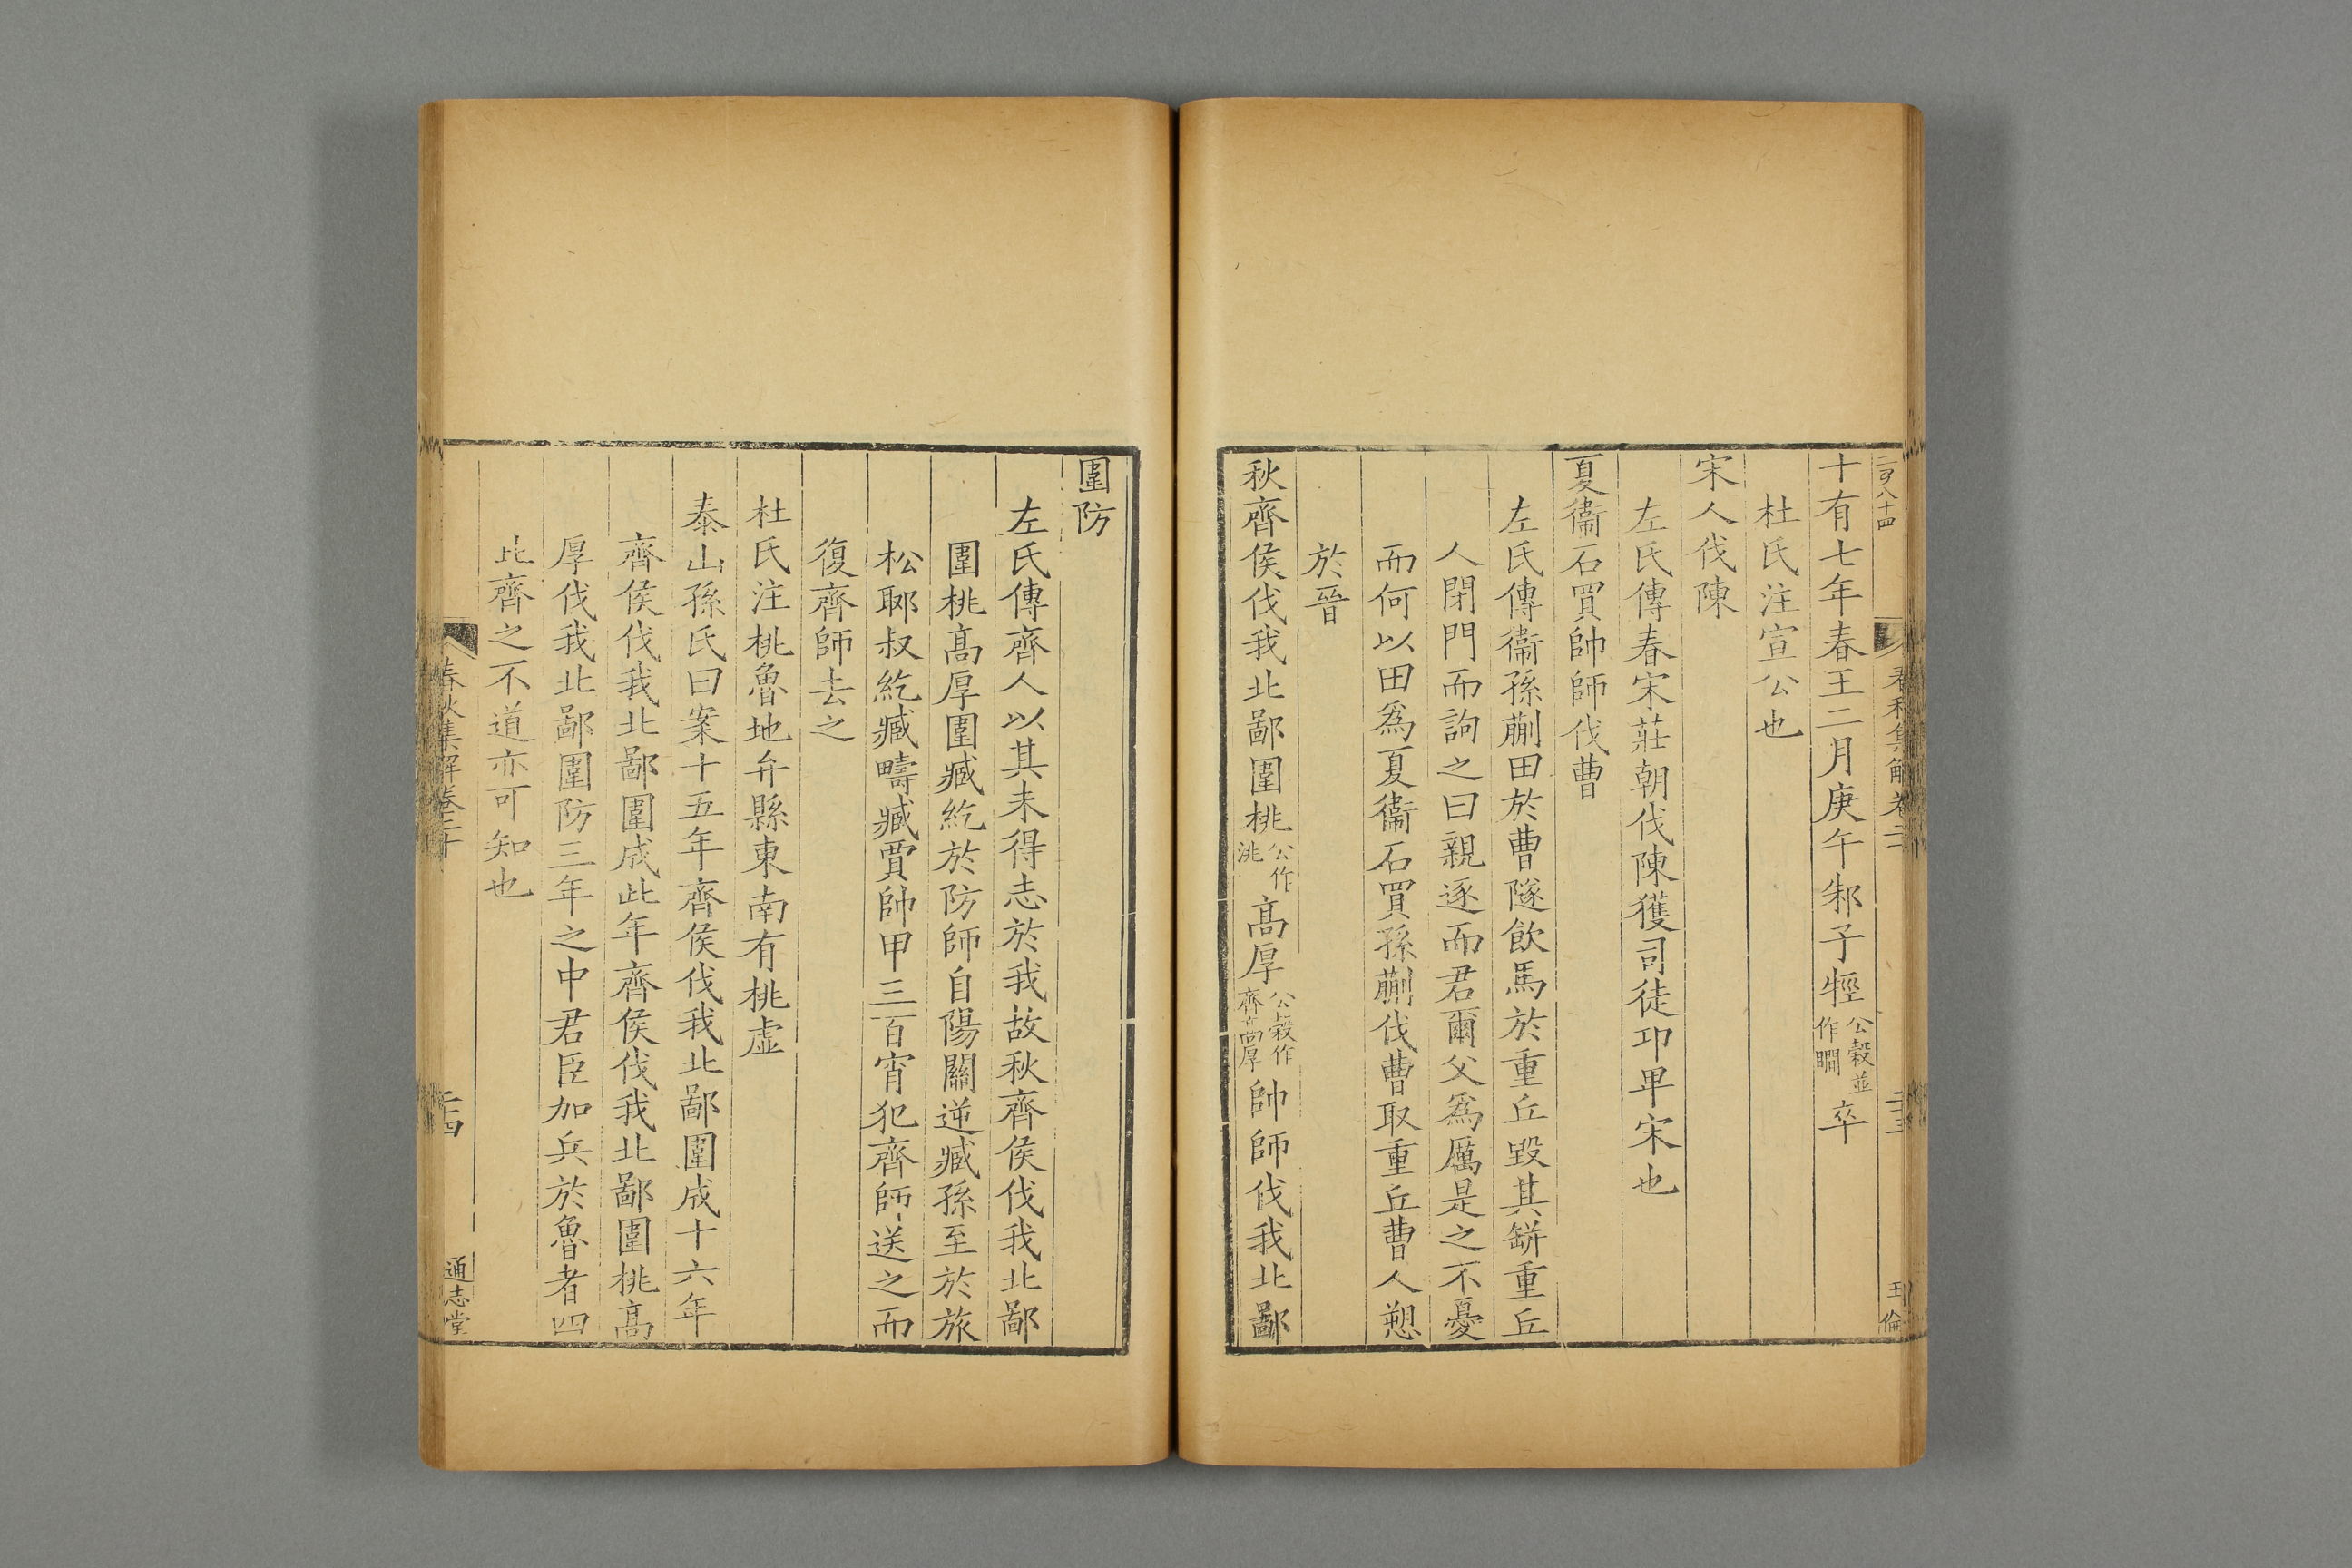 十有七年春王二月庚午邾子牼公穀並作瞯卒
杜氏注宣公也
宋人伐陳
左氏傳春宋莊朝伐陳獲司徒卬卑宋也
夏衞石買帥師伐曹
左氏傳衞孫蒯田於曹隧飲馬於重丘毀其缾重丘
人閉門而詢之曰親逐而君爾父爲厲是之不憂
而何以田爲夏衞石買孫蒯伐曹取重丘曹人愬
於晉
秋齊侯伐我北鄙圍桃公作洮高厚公穀作齊高厚帥師伐我北鄙
圍防
左氏傳齊人以其未得志於我故秋齊侯伐我北鄙
圍桃高厚圍臧紇於防師自陽關逆臧孫至於旅
松郰叔紇臧疇臧賈帥甲三百宵犯齊師送之而
復齊師去之
杜氏注桃魯地弁縣東南有桃虛
泰山孫氏曰案十五年齊侯伐我北鄙圍成十六年
齊侯伐我北鄙圍成此年齊侯伐我北鄙圍桃高
厚伐我北鄙圍防三年之中君臣加兵於魯者四
比齊之不道亦可知也
春秋集解卷二十
二十四
通志堂